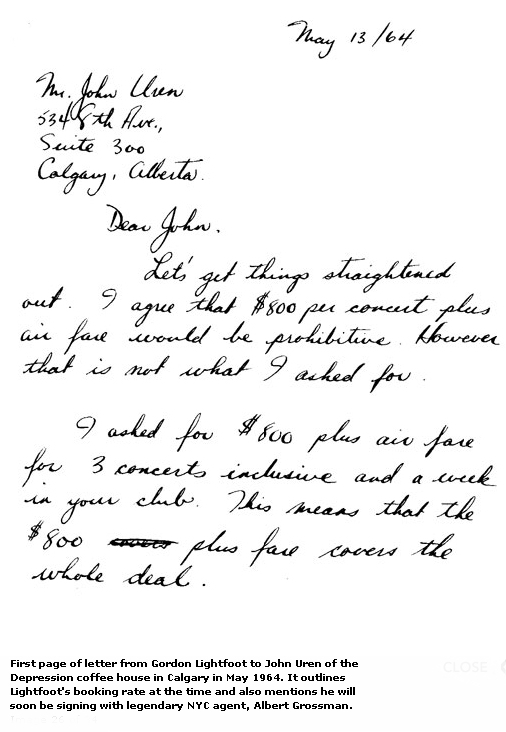 May 13/64
Mr. John Uren
534 8th Ave.,
Suite 300
Calgary, Alberta.
Dear John,
Let's get things straightened
out. I agree that $800 per concert plus
air fare would be prohibitive. However
that is not what I asked for.
I asked for $800 plus air fare
for 3 concerts inclusive and a week
in your club. This means that the
$800 covers plus fare covers the
whole deal.
First page of letter from Gordon Lightfoot to John Uren of the
Depression coffee house in Calgary in May 1964. It outlines
Lightfoot's booking rate at the time and also mentions he will
soon be signing with legendary NYC agent, Albert Grossman.
CLOSE